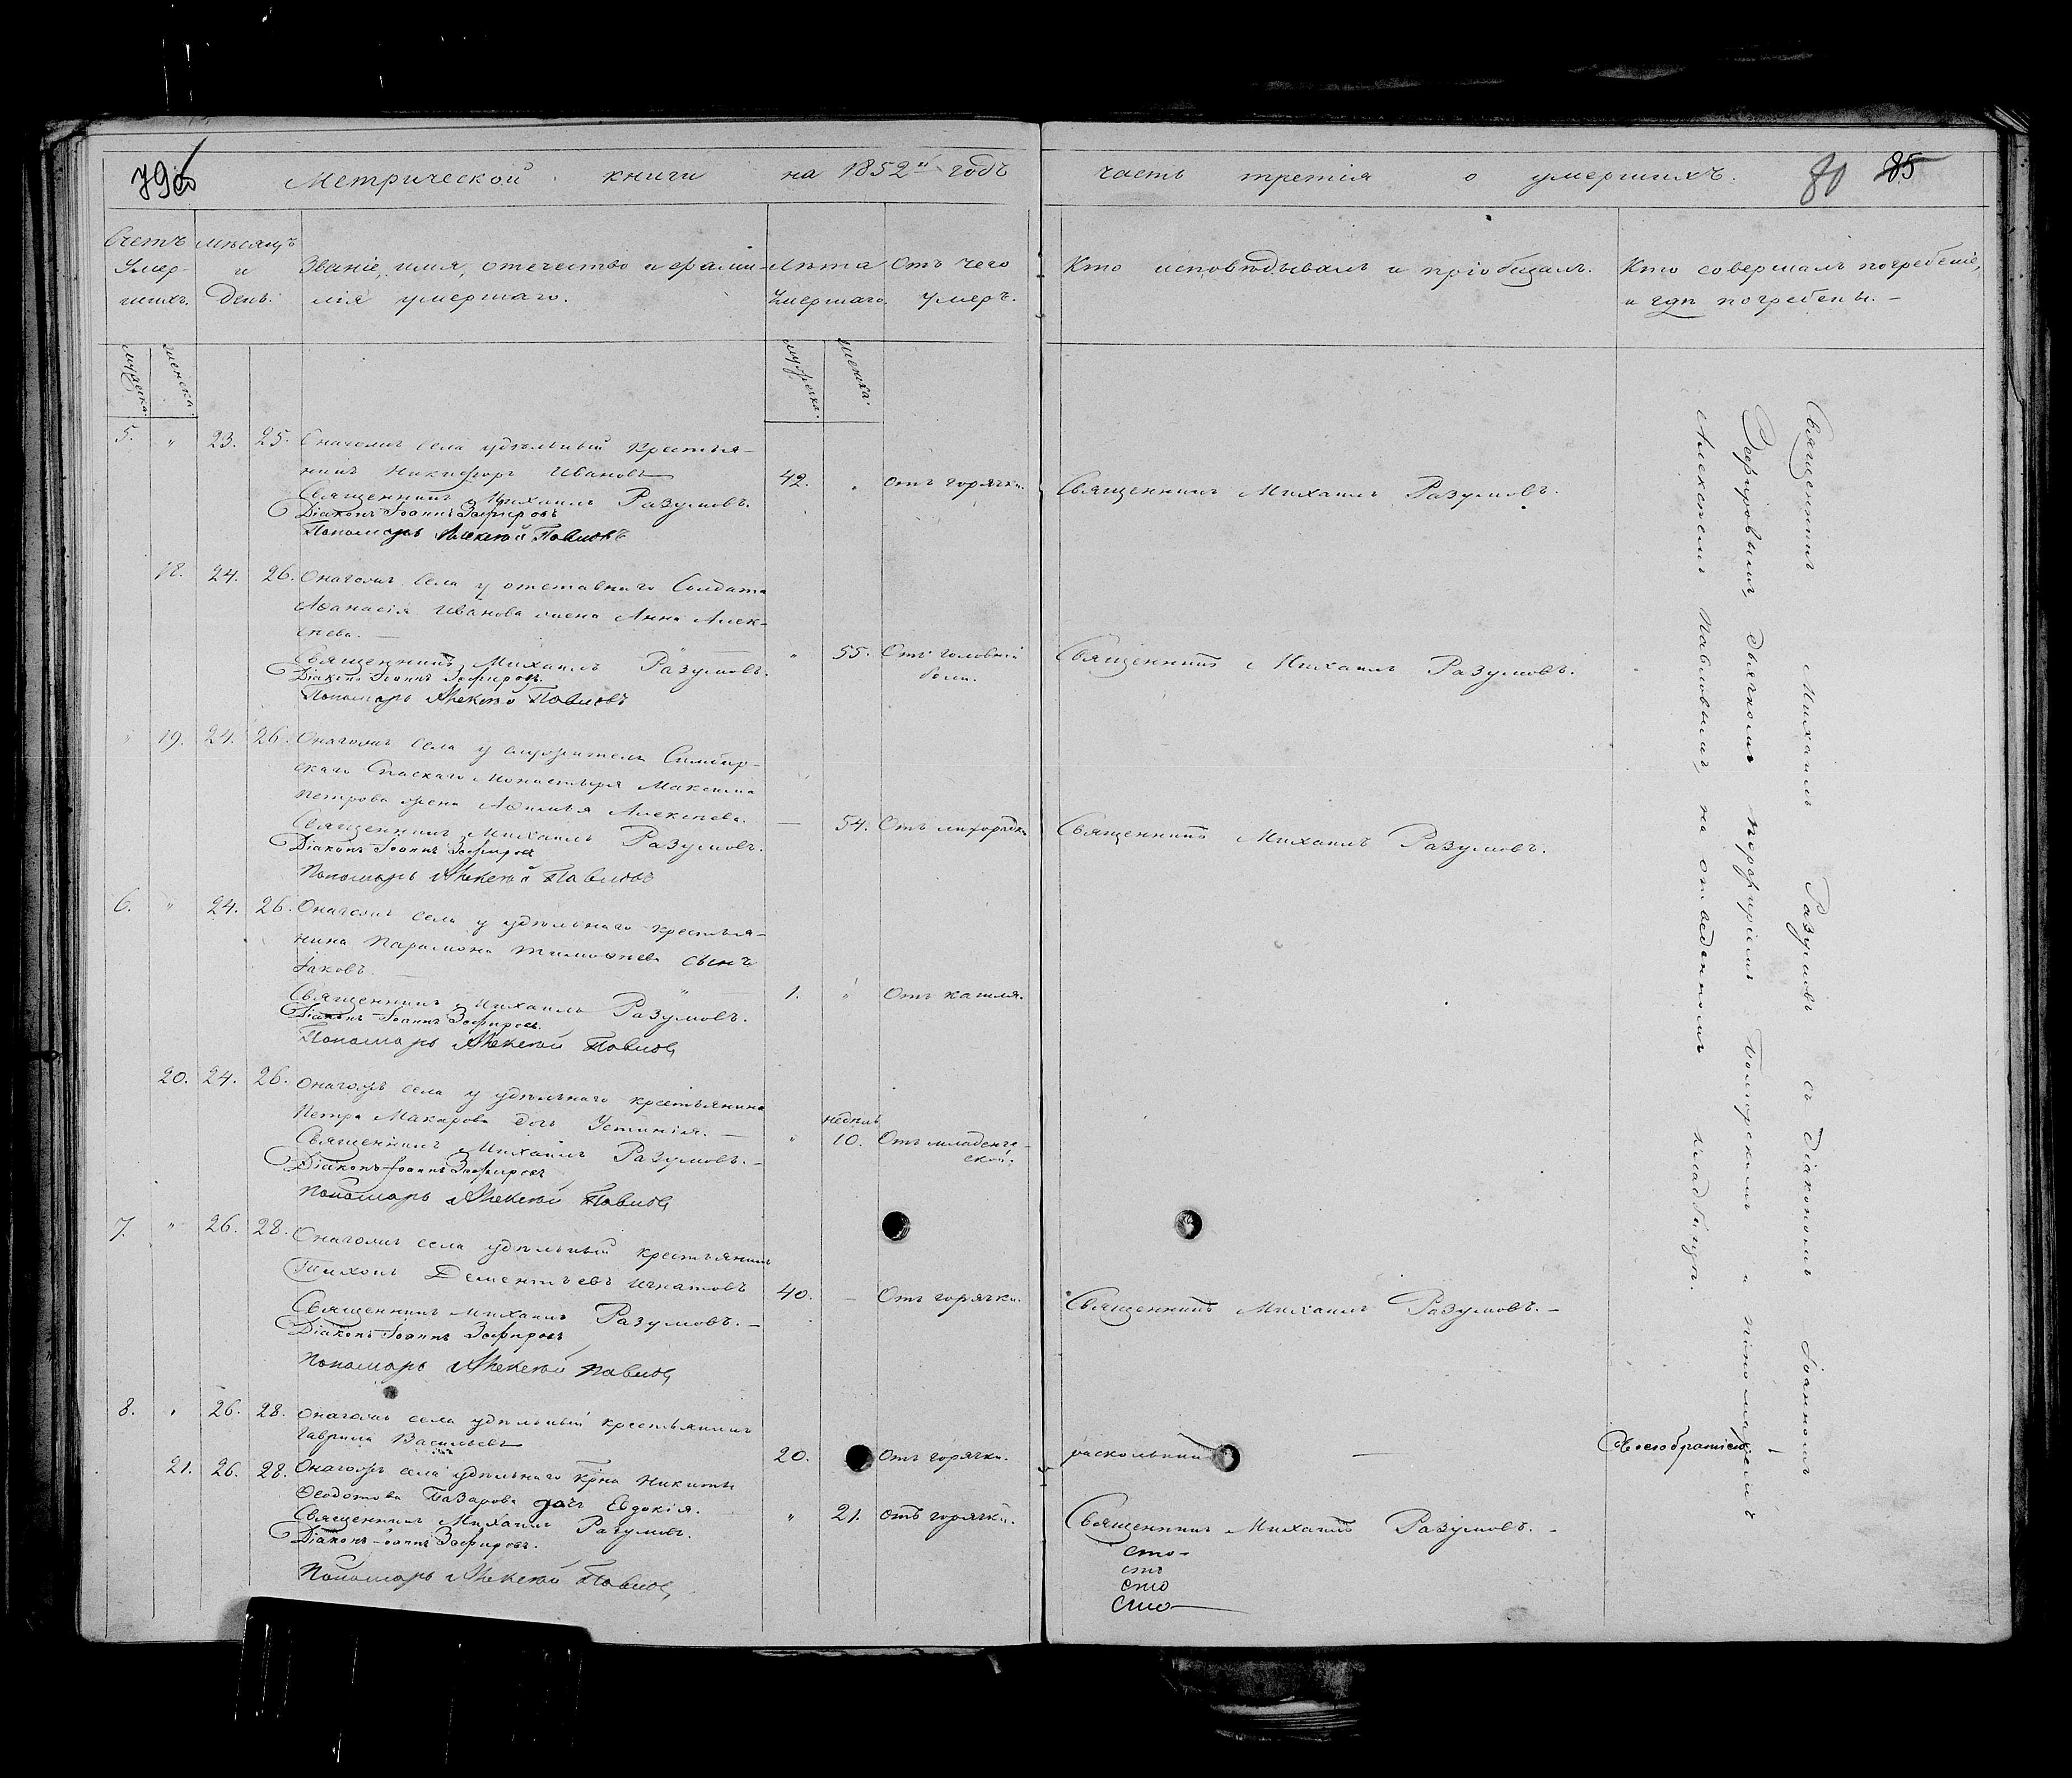 Метрической книги на 1852й годъ часть третія о умершихъ. 80 85
Счетъ Умершихъ.
мѣсяцъ и день.
Званіе, имя, отечество и фами-
лія умершаго.
Лѣта Умершаго.
Отъ чего умеръ.
Кто исповѣдывалъ и пріобщалъ.
Кто совершалъ погребеніе,
и гдѣ погребены.
мужеска. женска.
мужеска. женска.
5. " 23. 25. Онагожъ села удѣльный Крестья-
нинъ Никифоръ Ивановъ 42. " отъ горячки. Священникъ Михаилъ Разумовъ.
Священникъ Михаилъ Разумовъ.
Діаконъ Іоаннъ Зефировъ
Пономарь Алексѣй Павловъ
18. 24. 26. Онагожъ села у отставнаго Солдата
Аѳанасія Иванова жена Анна Алек-
сѣева.
Священникъ Михаилъ Разумовъ. " 55. Отъ головной боли. Священникъ Михаилъ Разумовъ.
Діаконъ Іоаннъ Зефировъ.
Пономарь Алексѣй Павловъ
" 19. 24. 26. Онагожъ села у служителя Симбир-
скаго Спаскаго Монастыря Максима
Петрова жена Алексѣева.
Священникъ Михаилъ Разумовъ. — 54. Отъ лихорадки Священникъ Михаилъ Разумовъ.
Діаконъ Іоаннъ Зефировъ
Пономарь Алексѣй Павловъ
6. " 24. 26. Онагожъ села у удѣльнаго крестья-
нина Парамона Тимоѳѣева сынъ
Іаковъ.
Священникъ Михаилъ Разумовъ. 1. " Отъ кашля.
Діаконъ Іоаннъ Зефировъ.
Пономарь Алексѣй Павловъ
20. 24. 26. Онагожъ села у удѣльнаго крестьянина
Петра Макарова дочь Устинія. — " недѣль 10. Отъ младенче-
ской.
Священникъ Михаилъ Разумовъ. —
Діаконъ Іоаннъ Зефировъ
Пономарь Алексѣй Павловъ
7. " 26. 28. Онагожъ села удѣльный крестьянинъ
Тихонъ Дементьевъ Игнатовъ 40. — Отъ горячки. Священникъ Михаилъ Разумовъ. —
Священникъ Михаилъ Разумовъ. —
Діаконъ Іоаннъ Зефировъ
Пономарь Алексѣй Павловъ
8. " 26. 28. Онагожъ села удѣльный крестьянинъ
Гаврила Васильевъ 20. Отъ горячки. раскольникъ —
21. 26. 28. Онагожъ села удѣльнаго кр͠на Никиты
Ѳеодотова дочь Евдокія. " 21. отъ горячки. Священникъ Михаилъ Разумовъ. —
Священникъ Михаилъ Разумовъ.
Діаконъ Іоаннъ Зефировъ.
Пономарь Алексѣй Павловъ
сто
сто
сто
сто
Священникъ Михаилъ Разумовъ съ Діакономъ Іоанномъ
Зефировымъ, дьячкомъ Порфиріемъ и пономаремъ
Алексѣемъ Павловымъ, на отведенномъ кладбищѣ.